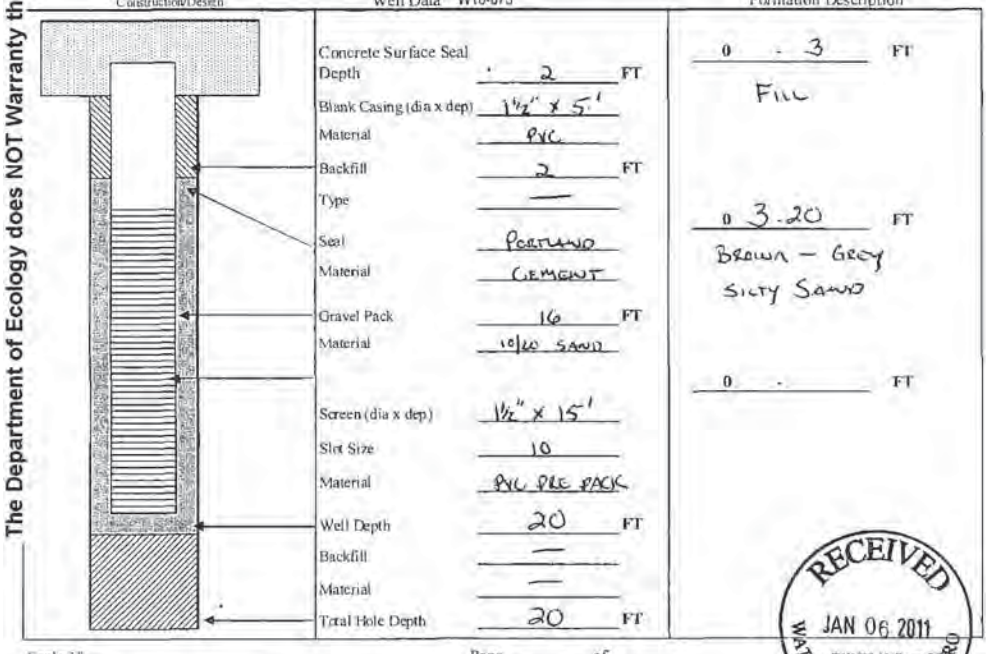 The Department of Ecology does NOT Warranty th
Construction/Design
Well Data
Formation Description
Concrete Surface Seal
Depth 2 FT
Blank Casing (dia x dep) 1 1/2" x 5'
Material PVC
Backfill 2 FT
Type —
Seal PORTLAND
Material CEMENT
Gravel Pack 16 FT
Material 10/20 SAND
Screen (dia x dep) 1 1/2" x 15'
Slot Size 10
Material PVC PRE PACK
Well Depth 20 FT
Backfill —
Material —
Total Hole Depth 20 FT
0 - 3 FT
FILL
0 3-20 FT
BROWN - GREY
SILTY SAND
0 - FT
RECEIVED
JAN 06 2011